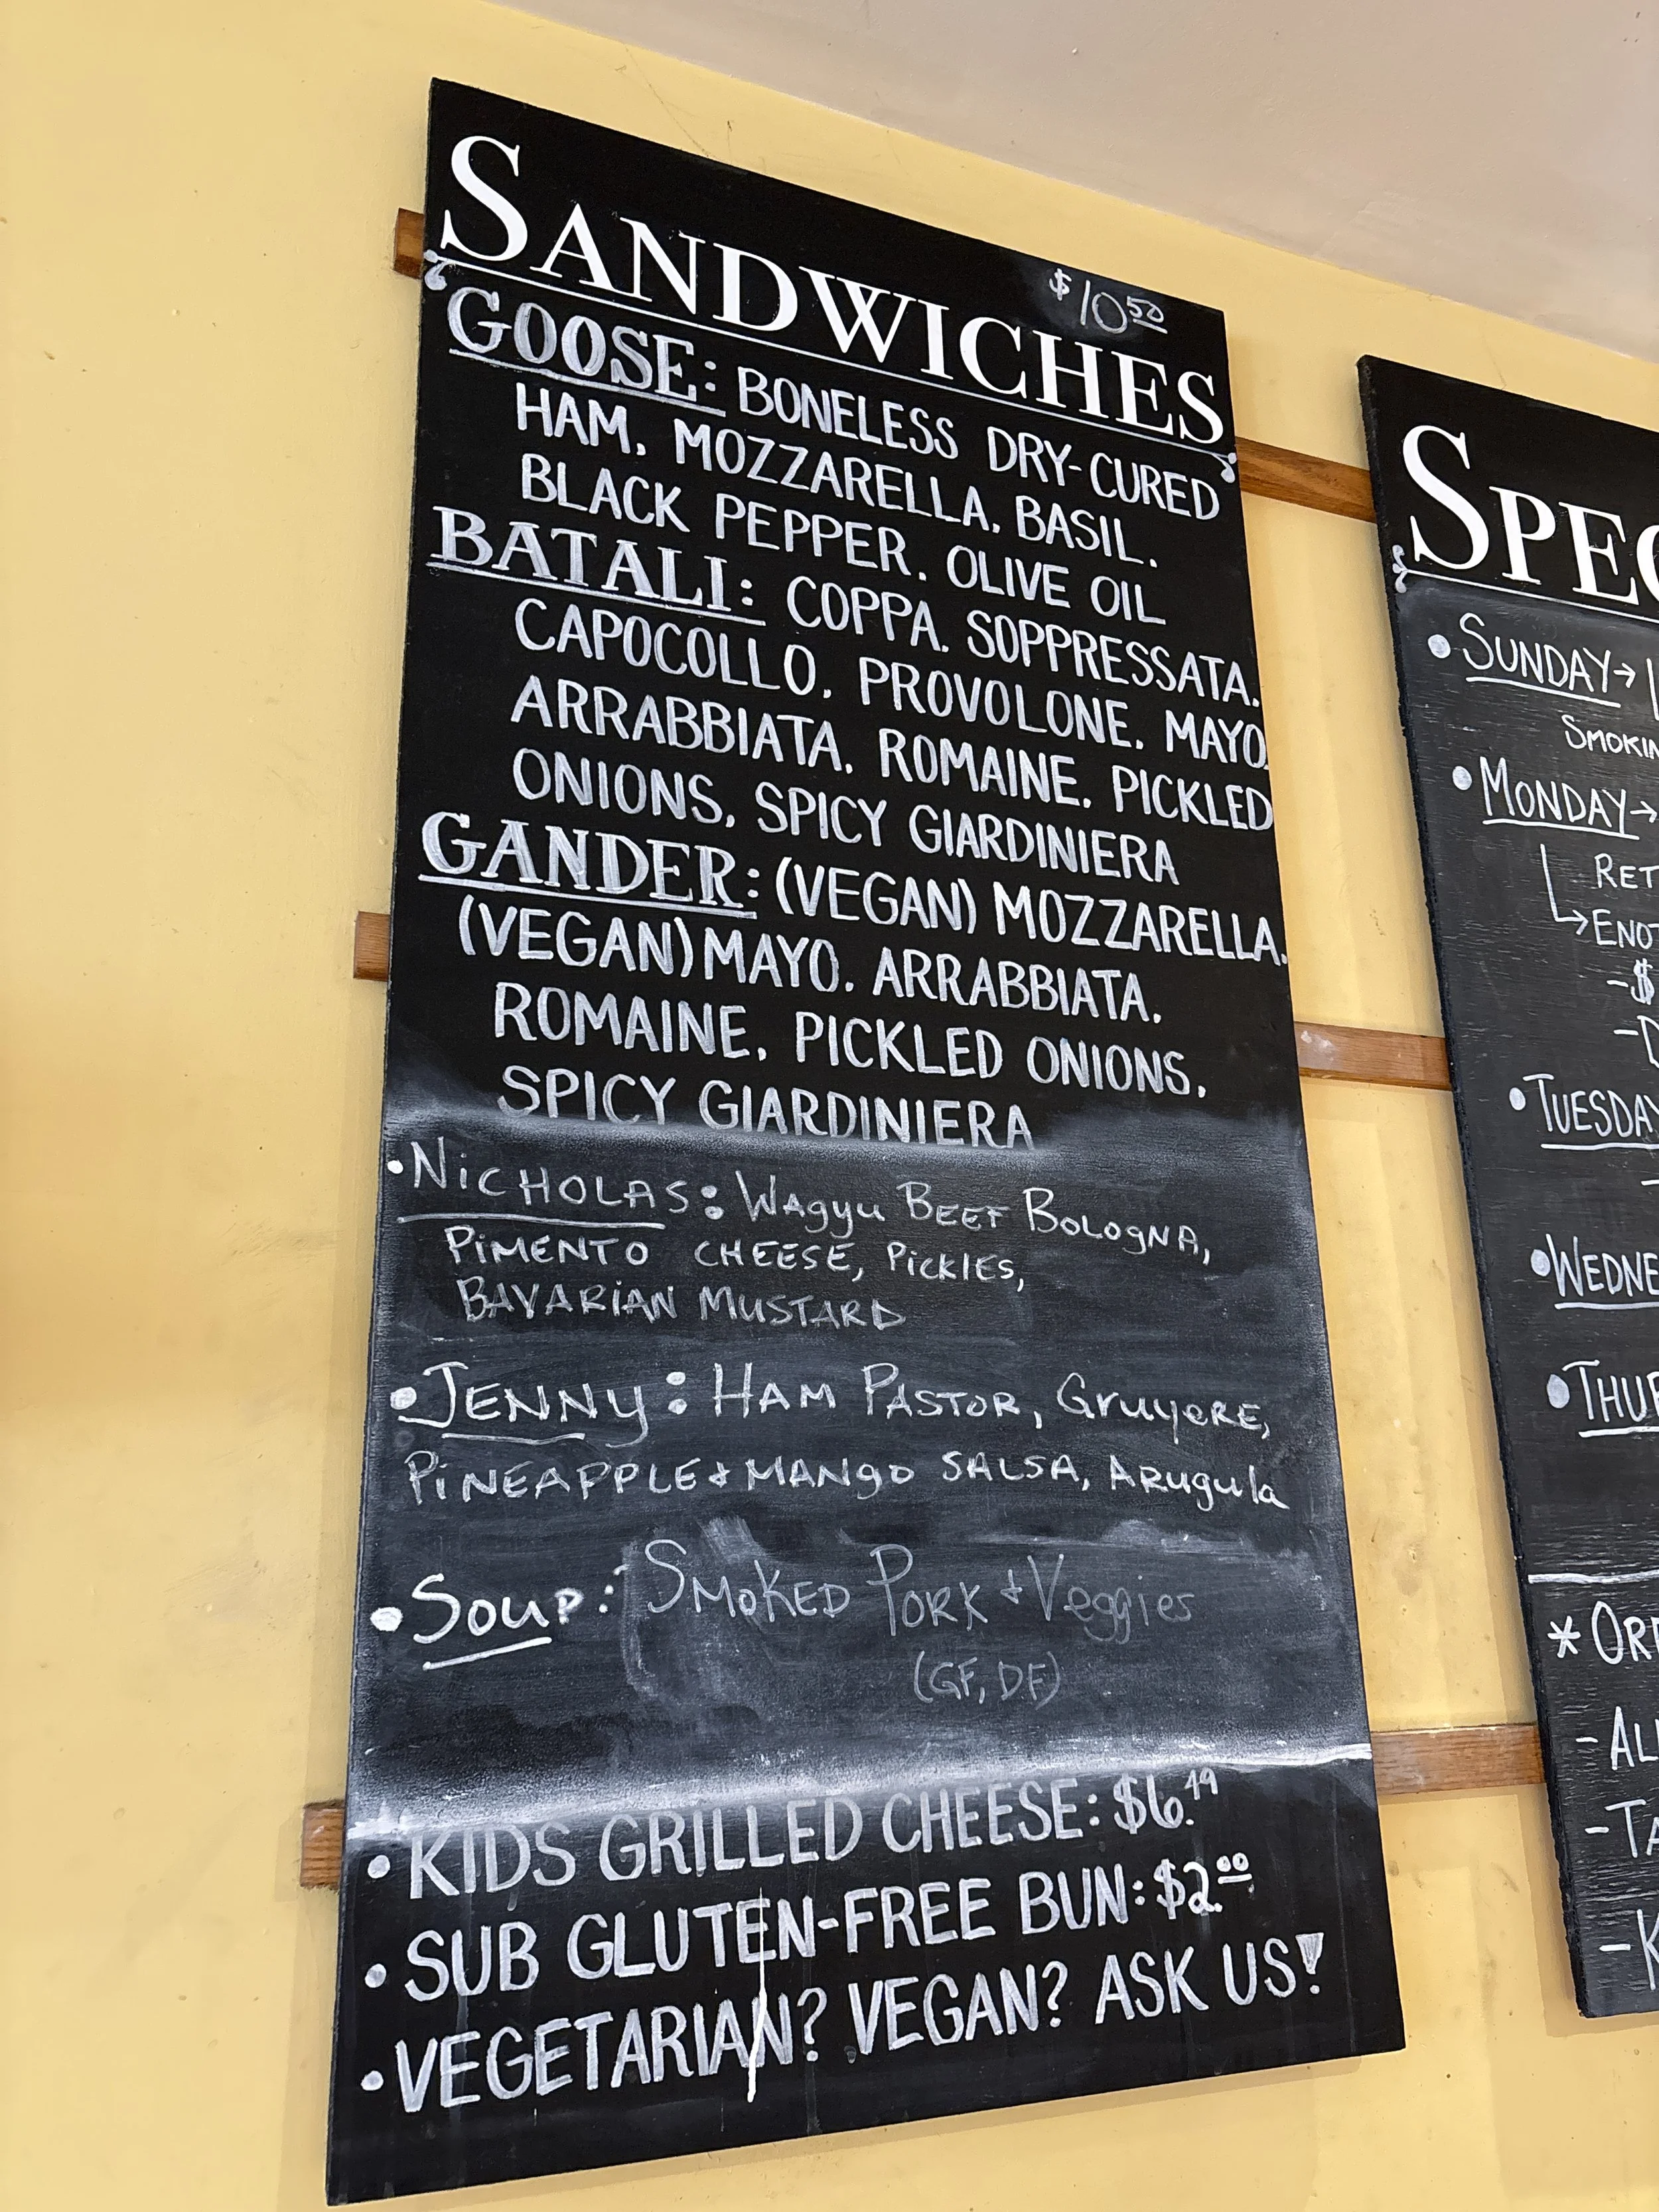 SANDWICHES
$10.50
GOOSE: BONELESS DRY-CURED
HAM, MOZZARELLA, BASIL,
BLACK PEPPER, OLIVE OIL
BATALI: COPPA, SOPPRESSATA,
CAPOCOLLO, PROVOLONE, MAYO,
ARRABBIATA, ROMAINE, PICKLED
ONIONS, SPICY GIARDINIERA
GANDER: (VEGAN) MOZZARELLA,
(VEGAN) MAYO, ARRABBIATA,
ROMAINE, PICKLED ONIONS,
SPICY GIARDINIERA
• NiCHOLAS: WAgyu BEEF BOLOgNA,
PiMENTO CHEESE, PiCKlES,
BAVARiAN MUSTARD
• JENNy: HAM PASTOR, GruyeRE,
PiNEAPPLE + MANgO SALSA, ARugula
• Soup: SMOKED PORK + Veggies
(GF, DF)
• KIDS GRILLED CHEESE: $6.49
• SUB GLUTEN-FREE BUN: $2.00
• VEGETARIAN? VEGAN? ASK US!
SPEC
• SUNDAY →
SMOKIN
• MONDAY →
RET
↳ ENOT
-$
• TUESDAY
• WEDNE
• THUR
* ORD
- AL
- TA
- K